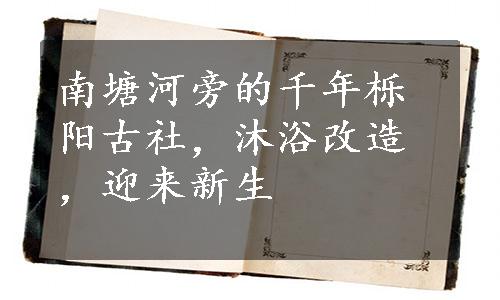 南塘河旁的千年栎
阳古社，沐浴改造
，迎来新生